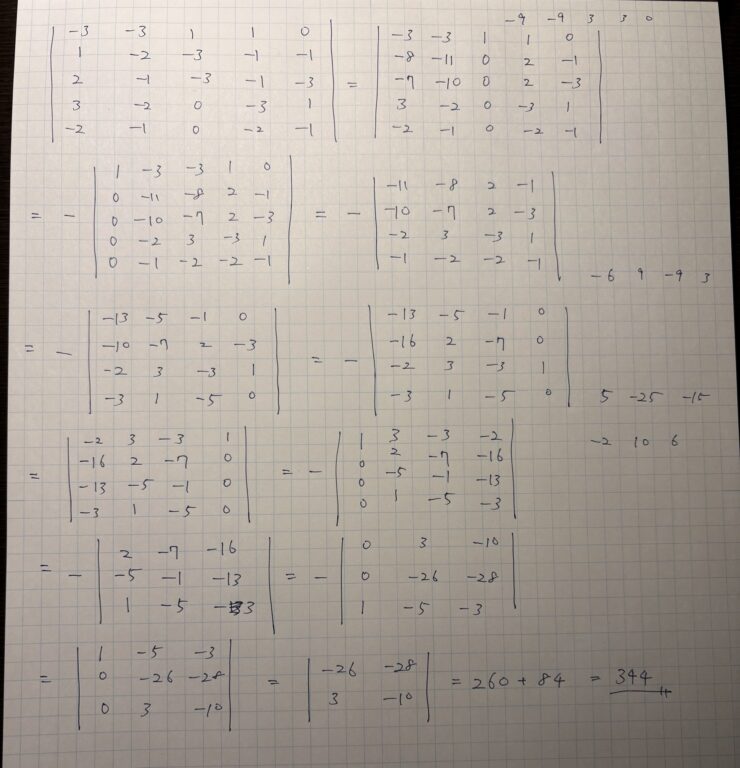 -9 -9 3 3 0
| -3 -3 1 1 0 | | -3 -3 1 1 0 |
| 1 -2 -3 -1 -1 | | -8 -11 0 2 -1 |
| 2 -1 -3 -1 -3 | = | -7 -10 0 2 -3 |
| 3 -2 0 -3 1 | | 3 -2 0 -3 1 |
| -2 -1 0 -2 -1 | | -2 -1 0 -2 -1 |
| 1 -3 -3 1 0 |
| 0 -11 -8 2 -1 | | -11 -8 2 -1 |
= - | 0 -10 -7 2 -3 | = - | -10 -7 2 -3 |
| 0 -2 3 -3 1 | | -2 3 -3 1 |
| 0 -1 -2 -2 -1 | | -1 -2 -2 -1 |
-6 9 -9 3
| -13 -5 -1 0 | | -13 -5 -1 0 |
= - | -10 -7 2 -3 | = - | -16 2 -7 0 |
| -2 3 -3 1 | | -2 3 -3 1 |
| -3 1 -5 0 | | -3 1 -5 0 | 5 -25 -15
| -2 3 -3 1 | | 1 3 -3 -2 | -2 10 6
| -16 2 -7 0 | | 0 2 -7 -16 |
= | -13 -5 -1 0 | = - | 0 -5 -1 -13 |
| -3 1 -5 0 | | 0 1 -5 -3 |
| 2 -7 -16 | | 0 3 -10 |
= - | -5 -1 -13 | = - | 0 -26 -28 |
| 1 -5 -3 | | 1 -5 -3 |
| 1 -5 -3 |
= | 0 -26 -28 | = | -26 -28 | = 260 + 84 = 344
| 0 3 -10 | | 3 -10 |